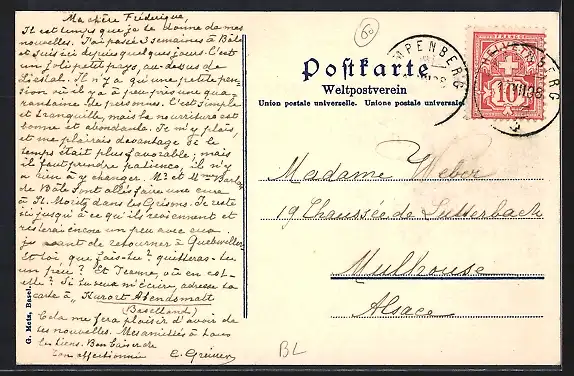 Ma chère Fréderique,
Il est temps que je te donne de mes
nouvelles. J'ai passé 3 semaines à Bâle
et suis ici depuis quelques jours. C'est
un joli petit pays, au-dessus de
Liestal. Il n'y a qu'une petite pen-
sion où il y a à peu près une qua-
rantaine de personnes. C'est simple
et tranquille, mais la nourriture est
bonne et abondante. Je m'y plais,
et me plairais davantage si le
temps était plus favorable; mais
il faut prendre patience, il n'y
a rien à y changer. Mr et Mme
de Bâle sont allés faire une cure
à St. Moritz dans les Grisons. Je reste
ici jusqu'à ce qu'ils reviennent et
resterai encore un peu avec eux
avant de retourner à Guebwiller.
Et toi, que fais-tu? quitteras-tu
un peu? Et Jeanne, où en est-
elle? Si tu veux m'écrire, adresse ta
carte à "Kurort Abendsmatt
(Baselland)
Cela me fera plaisir d'avoir de
tes nouvelles. Mes amitiés à tous
les tiens. Bon baiser de
ton affectionnée
G. Metz, Basel
60
Postkarte
Weltpostverein
Union postale universelle. Unione postale universale.
HELVETIA
FRANCO
10
Madame Weber
19 Chaussée de Lutterbach
Mulhouse
Alsace
BL